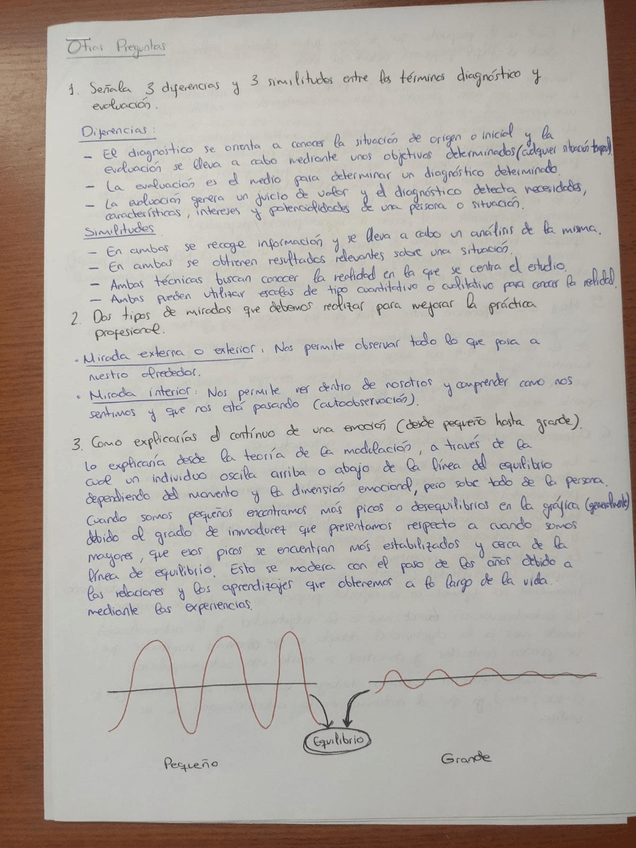 Otras Preguntas
1. Señala 3 diferencias y 3 similitudes entre los términos diagnóstico y
evaluación.
Diferencias:
- El diagnóstico se orienta a conocer la situación de origen o inicial y la
evaluación se lleva a cabo mediante unos objetivos determinados (cualquier situación
- La evaluación es el medio para determinar un diagnóstico determinado
- La evaluación genera un juicio de valor y el diagnóstico detecta necesidades,
características, intereses y potencialidades de una persona o situación.
Similitudes
- En ambos se recoge información y se lleva a cabo un análisis de la misma.
- En ambas se obtienen resultados relevantes sobre una situación.
- Ambas técnicas buscan conocer la realidad en la que se centra el estudio.
- Ambas pueden utilizar escalas de tipo cuantitativo o cualitativo para conocer la realidad.
2. Dos tipos de miradas que debemos realizar para mejorar la práctica
profesional.
· Mirada externa o exterior: Nos permite observar todo lo que pasa a
nuestro alrededor.
· Mirada interior: Nos permite ver dentro de nosotros y comprender como nos
sentimos y que nos está pasando (autoobservación).
3. Como explicarías el contínuo de una emoción (desde pequeño hasta grande).
Lo explicaría desde la teoría de la modulación, a través de la
cual un individuo oscila arriba o abajo de la línea del equilibrio
dependiendo del momento y la dimensión emocional, pero sobre todo de la persona.
Cuando somos pequeños encontramos más picos o desequilibrios en la gráfica (generalmente)
debido al grado de inmadurez que presentamos respecto a cuando somos
mayores, que esos picos se encuentran más estabilizados y cerca de la
línea de equilibrio. Esto se modera con el paso de los años debido a
las relaciones y los aprendizajes que obtenemos a lo largo de la vida.
mediante las experiencias.
Equilibrio
Pequeño
Grande